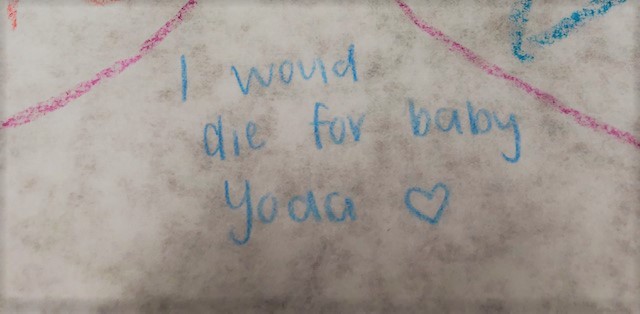 I would
die for baby
Yoda ♡